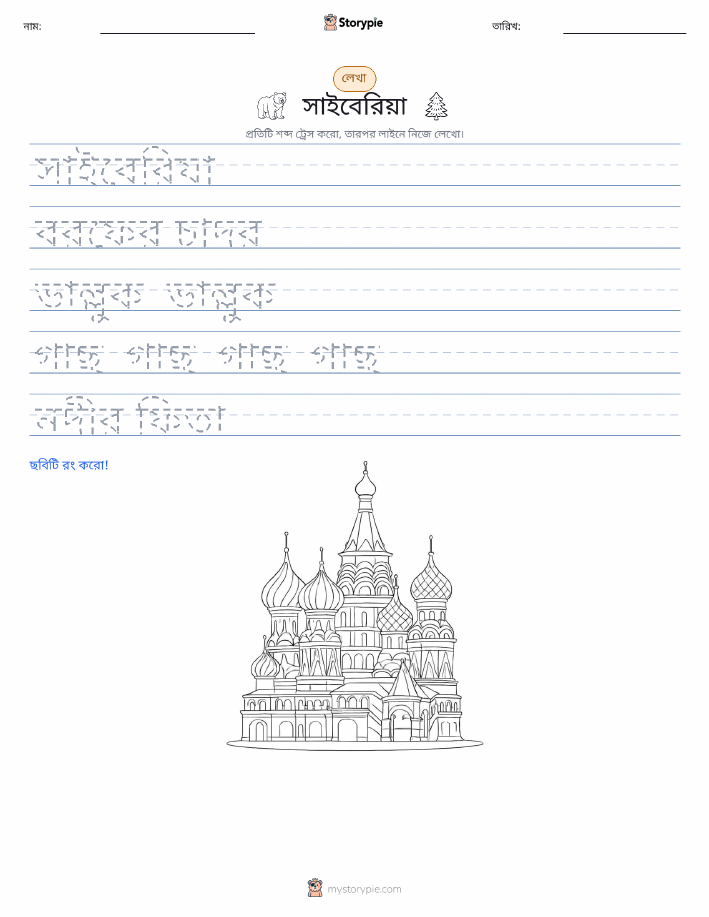 নাম:
Storypie
তারিখ:
লেখা
সাইবেরিয়া
প্রতিটি শব্দ ট্রেস করো, তারপর লাইনে নিজে লেখো।
সাইবেরিয়া
বরফের চাদর
ভাল্লুক ভাল্লুক
গাছ গাছ গাছ গাছ
নদীর ফিতা
ছবিটি রং করো!
mystorypie.com